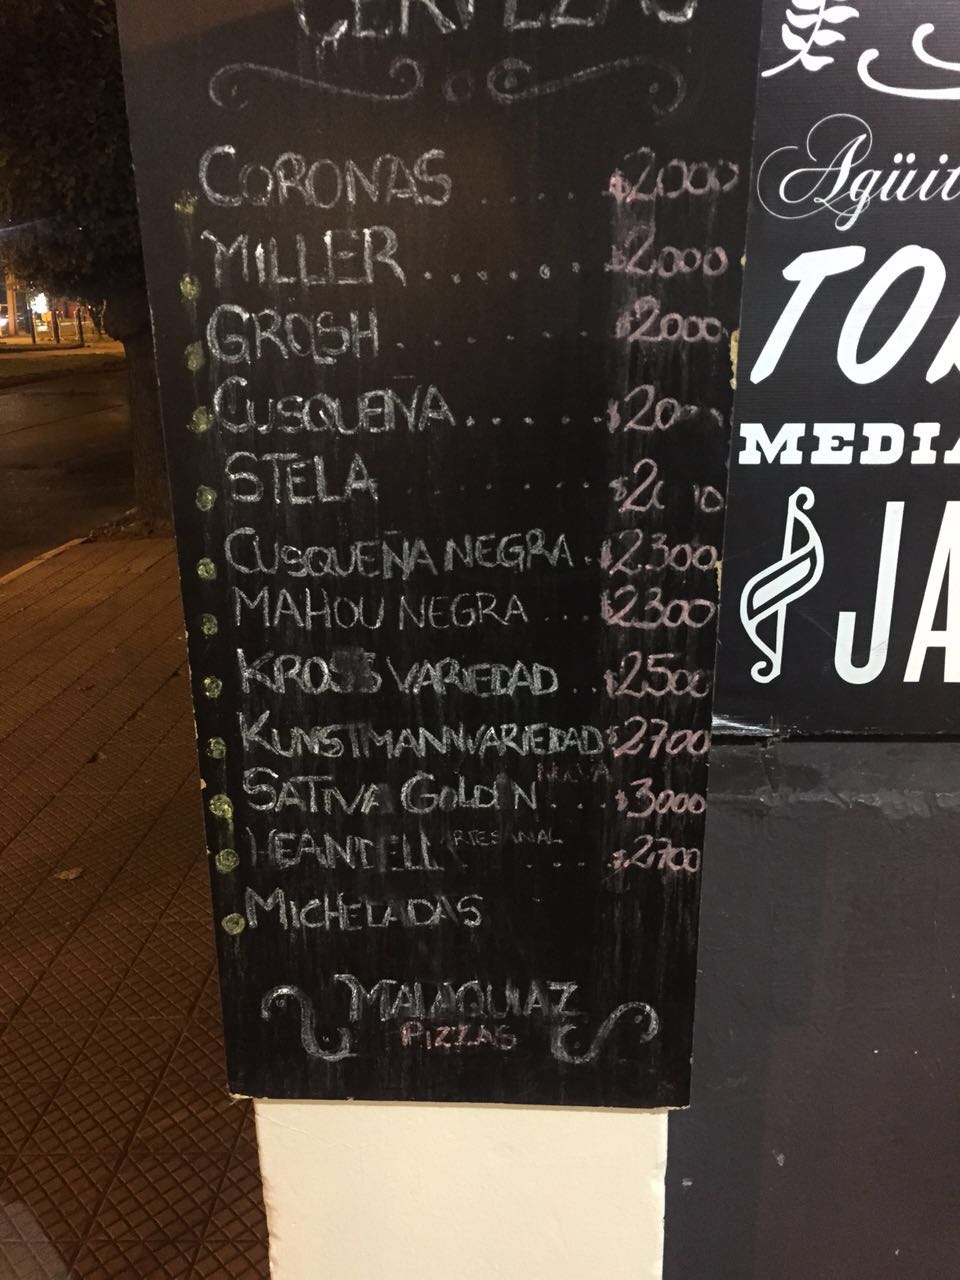 CERVEZAS
CORONAS . . . . $2000
MILLER . . . . . . $2000
GROLSH . . . . . . $2000
CUSQUEÑA . . . . . $20
STELA . . . . . . $2 0
CUSQUEÑA NEGRA . $2300
MAHOU NEGRA . . . $2300
KROSS VARIEDAD . . $2500
KUNSTMANN VARIEDAD $2700
NUEVA
SATIVA GOLDEN . . . $3000
ARTESANAL
$2700
MICHELADAS
MALAQUIAZ
PIZZAS
Agüit
TO
MEDIA
JA